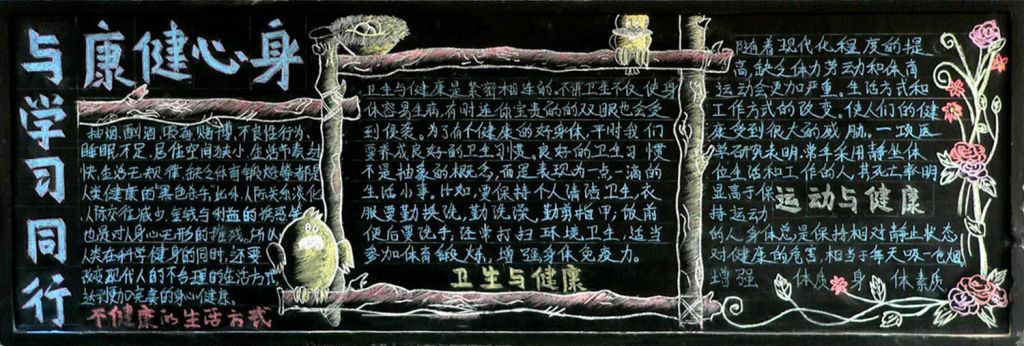 康健心身
与学习同行
抽烟、酗酒、吸毒、赌博、不良性行为、
睡眠不足、居住空间狭小、生活节奏
快、生活无规律、缺乏体育锻炼等都是
人类健康的黑色杀手。此外，人际关系淡化
人际交往减少、金钱与利益的
也是对人身心无形的摧残。所以
人类在科学健身的同时，还要
现代人的不合理的生活方式
达到更加完美的身心健康。
不健康的生活方式
卫生与健康是紧密相连的。不讲卫生不仅使身
体容易生病，有时连你宝贵的的双眼也会受
到侵袭。为了有个健康的好身体，平时我们
要养成良好的卫生习惯。良好的卫生习惯
不是抽象的概念，而是表现为一点一滴的
生活小事。比如，要保持个人清洁卫生，衣
服要勤换洗，勤洗澡，勤剪指甲，饭前
便后要洗手，还常打扫环境卫生，适当
参加体育锻炼，增强身体免疫力。
卫生与健康
随着现代化程度的提
高，缺乏体力劳动和体育
运动会更加严重。生活方式和
工作方式的改变，使人们的健
康受到很大的威胁。一项医
学研究表明，常年采用静坐体
位生活和工作的人，其死亡率明
显高于保
持运动
运动与健康
的人，身体总是保持相对静止状态
对健康的危害，相当于每天吸一包烟
增强 体质 身 体素质